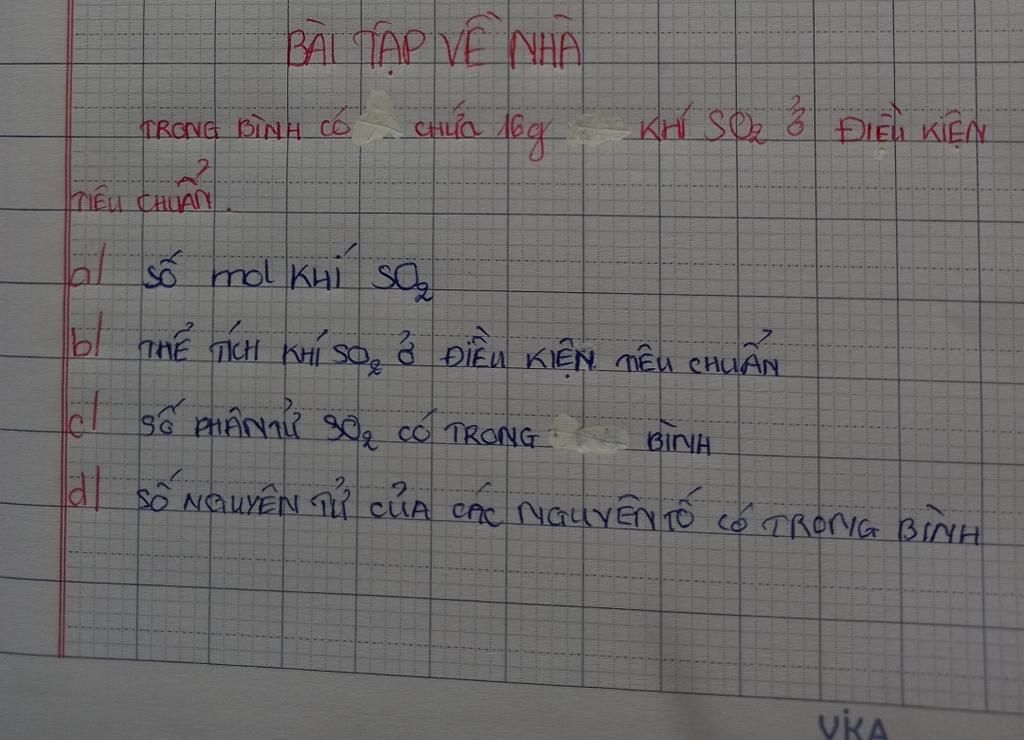 BÀI TẬP VỀ NHÀ
TRONG BÌNH CÓ CHỨA 16g KHÍ SO₂ Ở ĐIỀU KIỆN
TIÊU CHUẨN.
a/ SỐ mol KHÍ SO₂
b/ THỂ TÍCH KHÍ SO₂ Ở ĐIỀU KIỆN TIÊU CHUẨN
c/ SỐ PHÂN TỬ SO₂ CÓ TRONG BÌNH
d/ SỐ NGUYÊN TỬ CỦA CÁC NGUYÊN TỐ CÓ TRONG BÌNH
VIKA